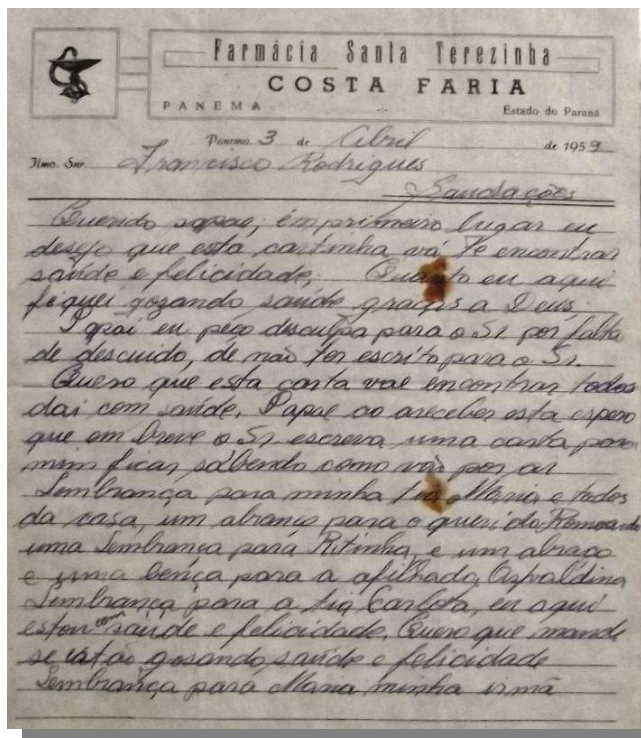 Farmácia Santa Terezinha
COSTA FARIA
PANEMA
Estado do Paraná
Panema 3 de Abril de 1959
Ilmo. Snr. Francisco Rodrigues
Saudações
Querido papae, em primeiro lugar eu
desejo que esta cartinha vá te encontrar
saúde e felicidade, Quanto eu aqui
fiquei gosando saúde graças a Deus
Papai eu peço desculpa para o Sr. por falta
de descuido, de não ter escrito para o Sr.
Quero que esta carta vae encontrar todos
dai com saúde, Papae ao areceber esta espero
que em breve o Sr. escreva uma carta para
mim ficar sabendo como vão por ai
Lembrança para minha tia Maria e todos
da casa, um abranço para o querido
uma Lembrança para Ritinha, e um abraço
e uma bença para a afilhada, Osvaldina
Lembrança para a tia Carlota, eu aqui
estou com saúde e felicidade, Quero que mande
se estão gosando saúde e felicidade
Lembrança para Maria minha irmã